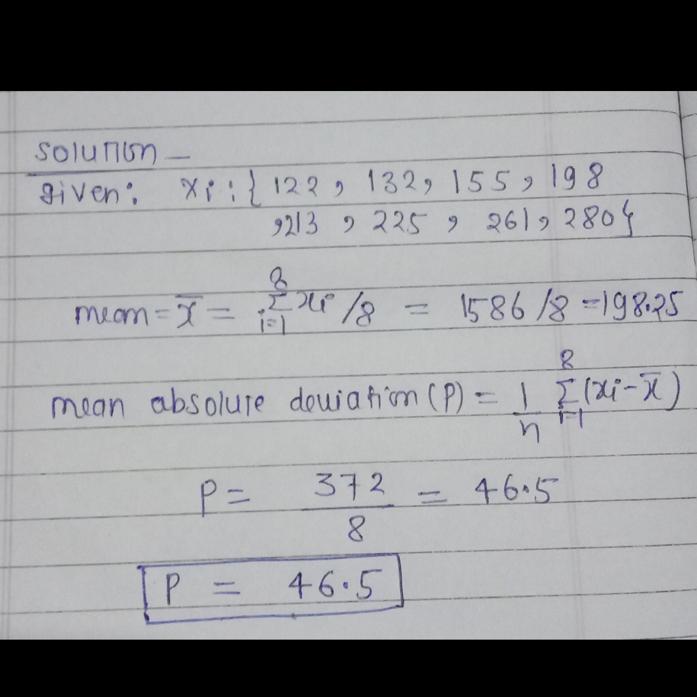 solution -
given: xi : { 122, 132, 155, 198
,213, 225, 261, 280}
mean = x̄ = 8Σi=1 xi /8 = 1586/8 = 198.25
mean absolute deviation (P) = 1/n 8Σi=1 (xi - x̄)
P = 372/8 = 46.5
P = 46.5